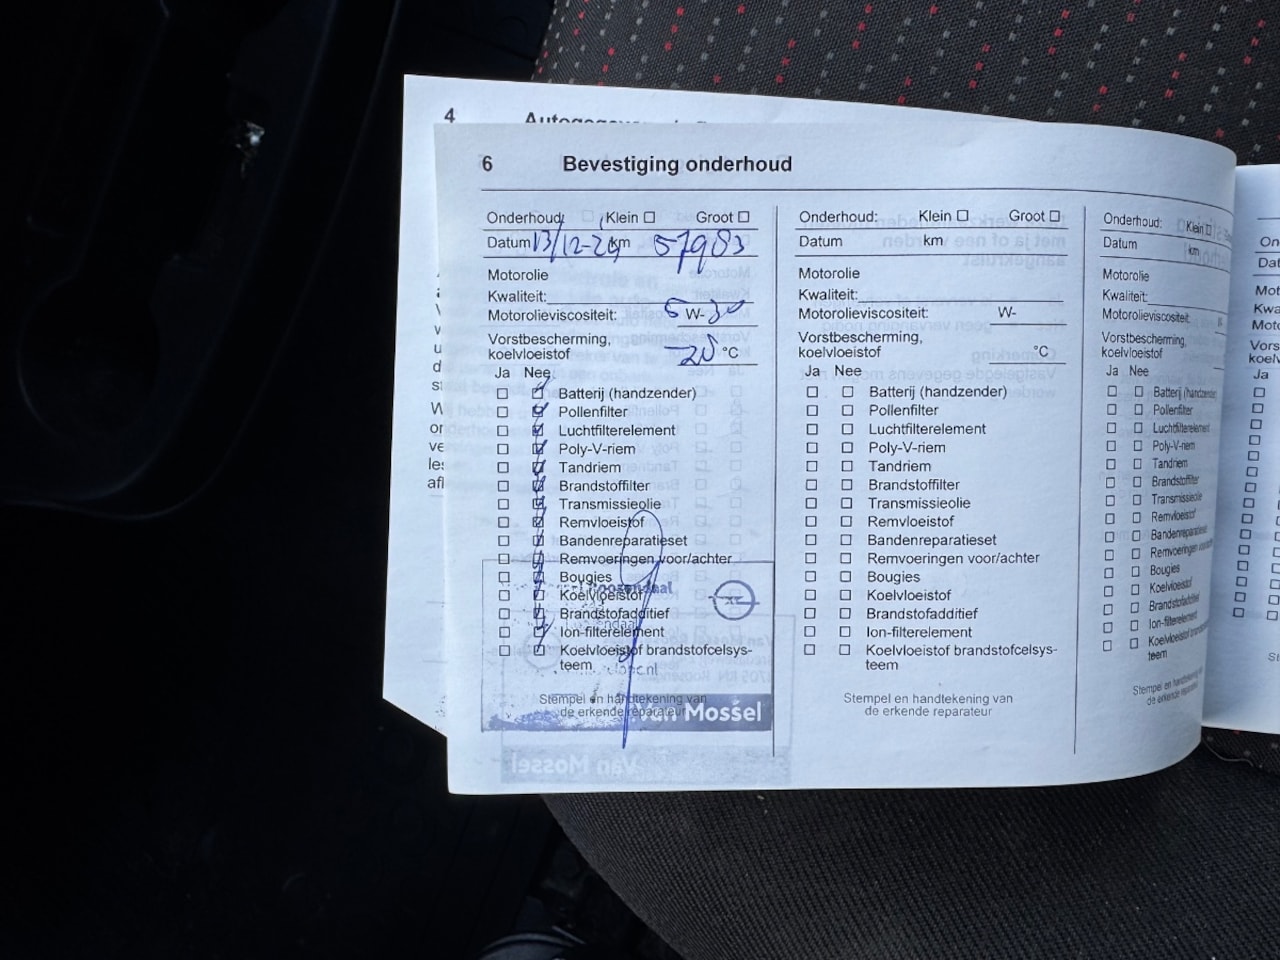 4
6 Bevestiging onderhoud
Onderhoud: Klein ☐ Groot ☐
Datum 13/12-24 km 57983
Motorolie
Kwaliteit:
Motorolieviscositeit: 5 W-30
Vorstbescherming,
koelvloeistof -28 °C
Ja Nee
Batterij (handzender)
Pollenfilter
Luchtfilterelement
Poly-V-riem
Tandriem
Brandstoffilter
Transmissieolie
Remvloeistof
Bandenreparatieset
Remvoeringen voor/achter
Bougies
Koelvloeistof
Brandstofadditief
Ion-filterelement
Koelvloeistof brandstofcelsys-
teem
Stempel en handtekening van
de erkende reparateur
Roosendaal
Van Mossel
Onderhoud: Klein ☐ Groot ☐
Datum km
Motorolie
Kwaliteit:
Motorolieviscositeit: W-
Vorstbescherming,
koelvloeistof °C
Ja Nee
Batterij (handzender)
Pollenfilter
Luchtfilterelement
Poly-V-riem
Tandriem
Brandstoffilter
Transmissieolie
Remvloeistof
Bandenreparatieset
Remvoeringen voor/achter
Bougies
Koelvloeistof
Brandstofadditief
Ion-filterelement
Koelvloeistof brandstofcelsys-
teem
Stempel en handtekening van
de erkende reparateur
Onderhoud: Klein ☐
Datum km
Motorolie
Kwaliteit:
Motorolieviscositeit:
Vorstbescherming,
koelvloeistof
Ja Nee
Batterij (handzender)
Pollenfilter
Luchtfilterelement
Poly-V-riem
Tandriem
Brandstoffilter
Transmissieolie
Remvloeistof
Bandenreparatieset
Remvoeringen
Bougies
Koelvloeistof
Brandstofadditief
Ion-filterelement
Koelvloeistof
teem
Stempel en
de erkende
Ja